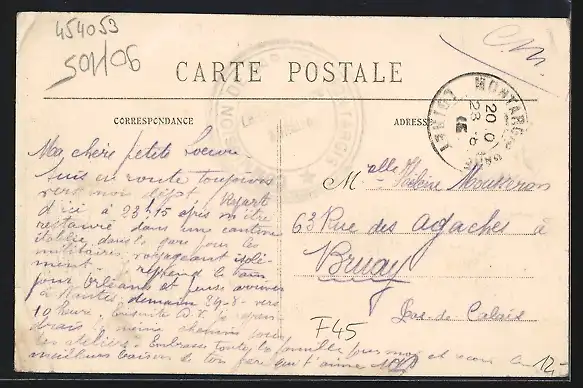 454053
50H06
CARTE POSTALE
CORRESPONDANCE
ADRESSE
MONTARGIS
LOIRET
20
23
Ma chère petite Soeur
Suis en route toujours
vers mon dépôt, Repart
d'ici à 23h15 après m'être
restauré dans une cantine
établie dans la gare pour les
militaires voyageant isolé-
ment. reprend le train
pour Orléans et pense arriver
à Nantes demain 24-8- vers
10 heure. Ensuite
même chemin pour
les ateliers. Embrasse toute la famille pour moi et
meilleurs baisers de ton frère qui t'aime
Melle Mousseron
63 Rue des agaches à
Bruay
Pas-de-Calais
F45
12,-